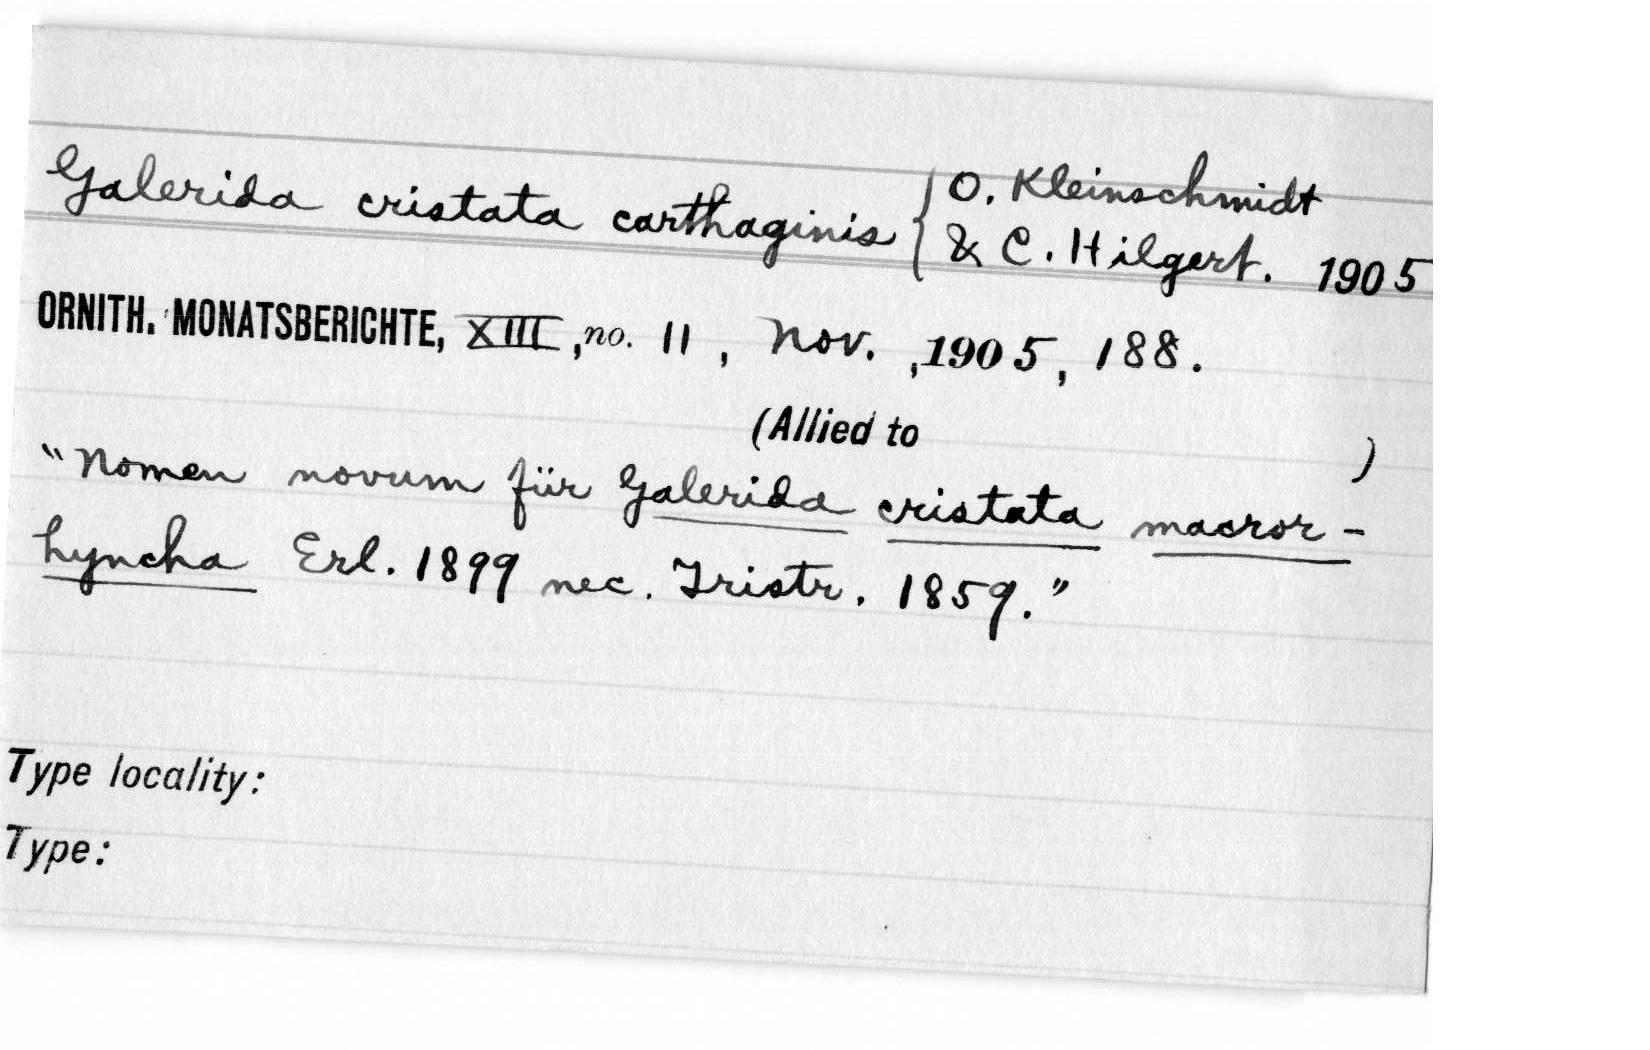 Galerida cristata carthaginis { O. Kleinschmidt
& C. Hilgert. 1905
ORNITH. MONATSBERICHTE, XIII, no. 11, Nov., 1905, 188.
(Allied to )
"Nomen novum für Galerida cristata macror-
hyncha Erl. 1899 nec. Tristr. 1859."
Type locality:
Type: